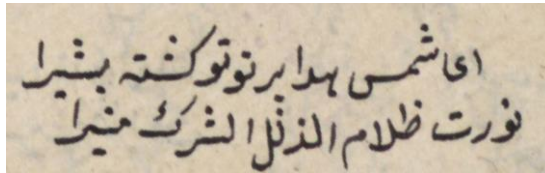 ای شمس هدا پرتو تو کشته بشیرا
نورت ظلام الذلل الشرک منیرا